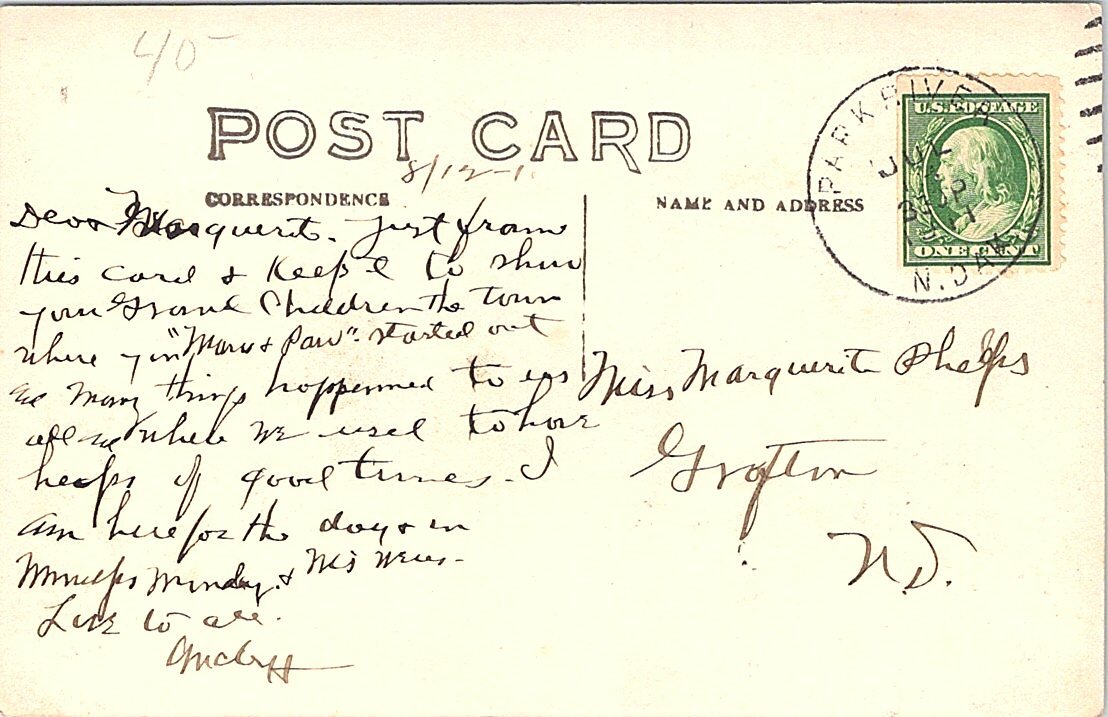 40-
POST CARD
8/12-1
CORRESPONDENCE
NAME AND ADDRESS
PARK RIVER
JUL
3
P
11
N. DAK
U.S. POSTAGE
ONE CENT
Dear Marguerite. Just frame
this card & Keep it to show
your Grand Children the town
where your "Maw & Paw" started out
many things happenned to us
all when we used to have
heaps of good times. I
am here for the day & in
Mpls Monday. &
Love to all.
Miss Marguerite Phelps
Grafton
N.D.